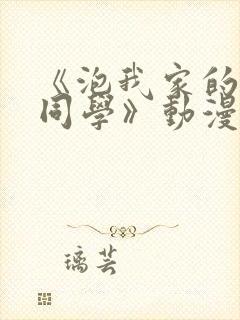 《泡我家的
同學》動漫
璃芸